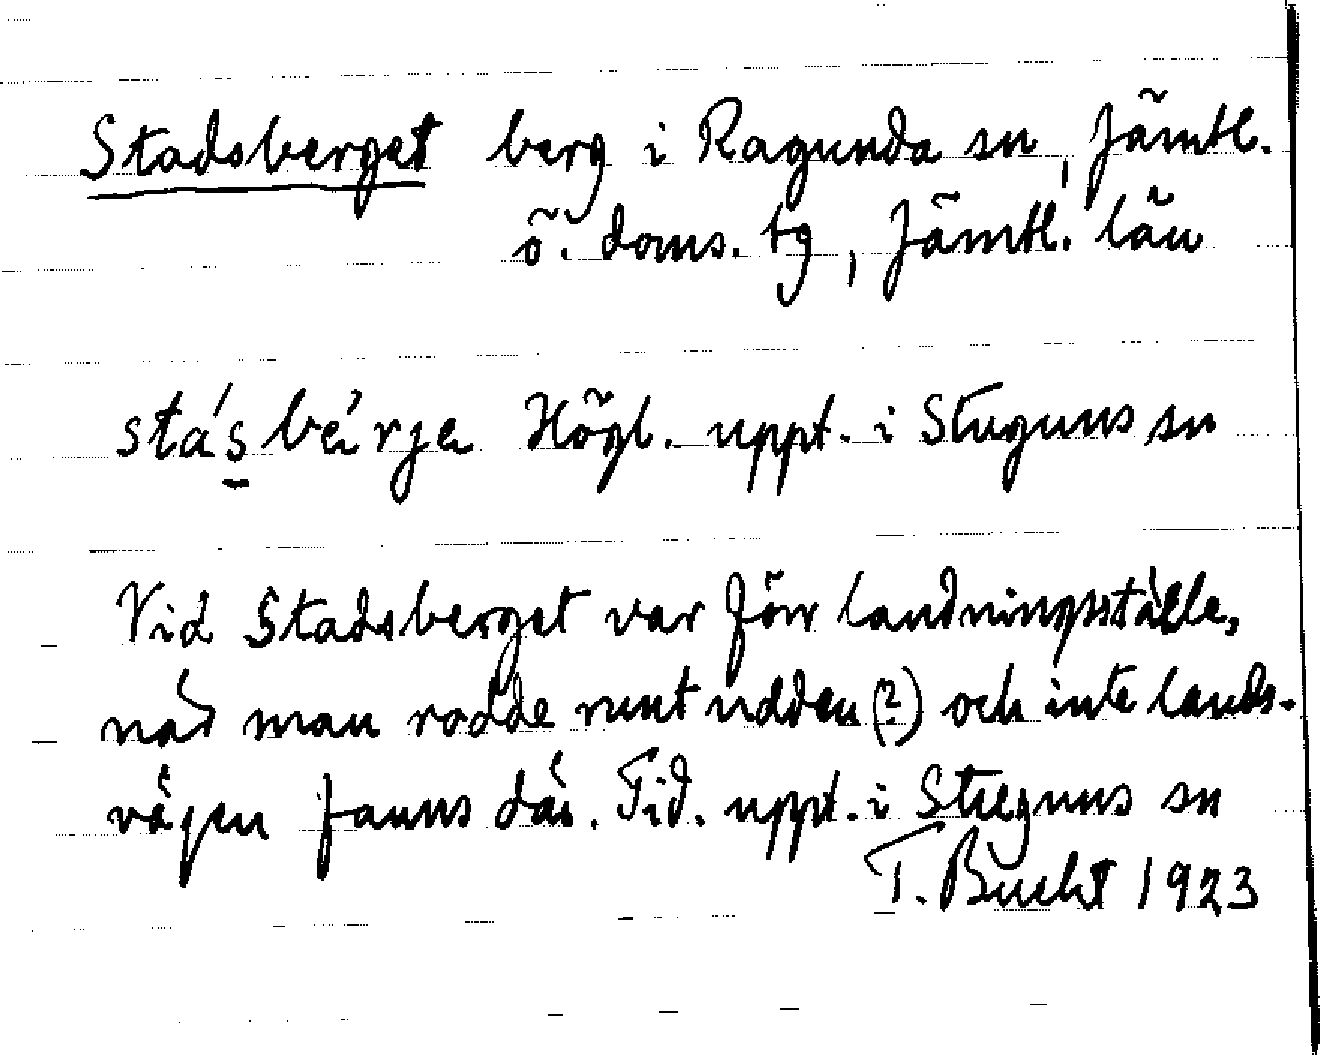 Stadsberget berg i Ragunda sn, Jämtl.
ö. doms. tg, Jämtl. län
stá's̱ bä́rjẹ Högl. uppt. i Stuguns sn
Vid Stadsberget var förr landningsställe,
när man rodde runt udden (?) och inte lands-
vägen fanns där. Tid. uppt. i Stuguns sn
T. Bucht 1923